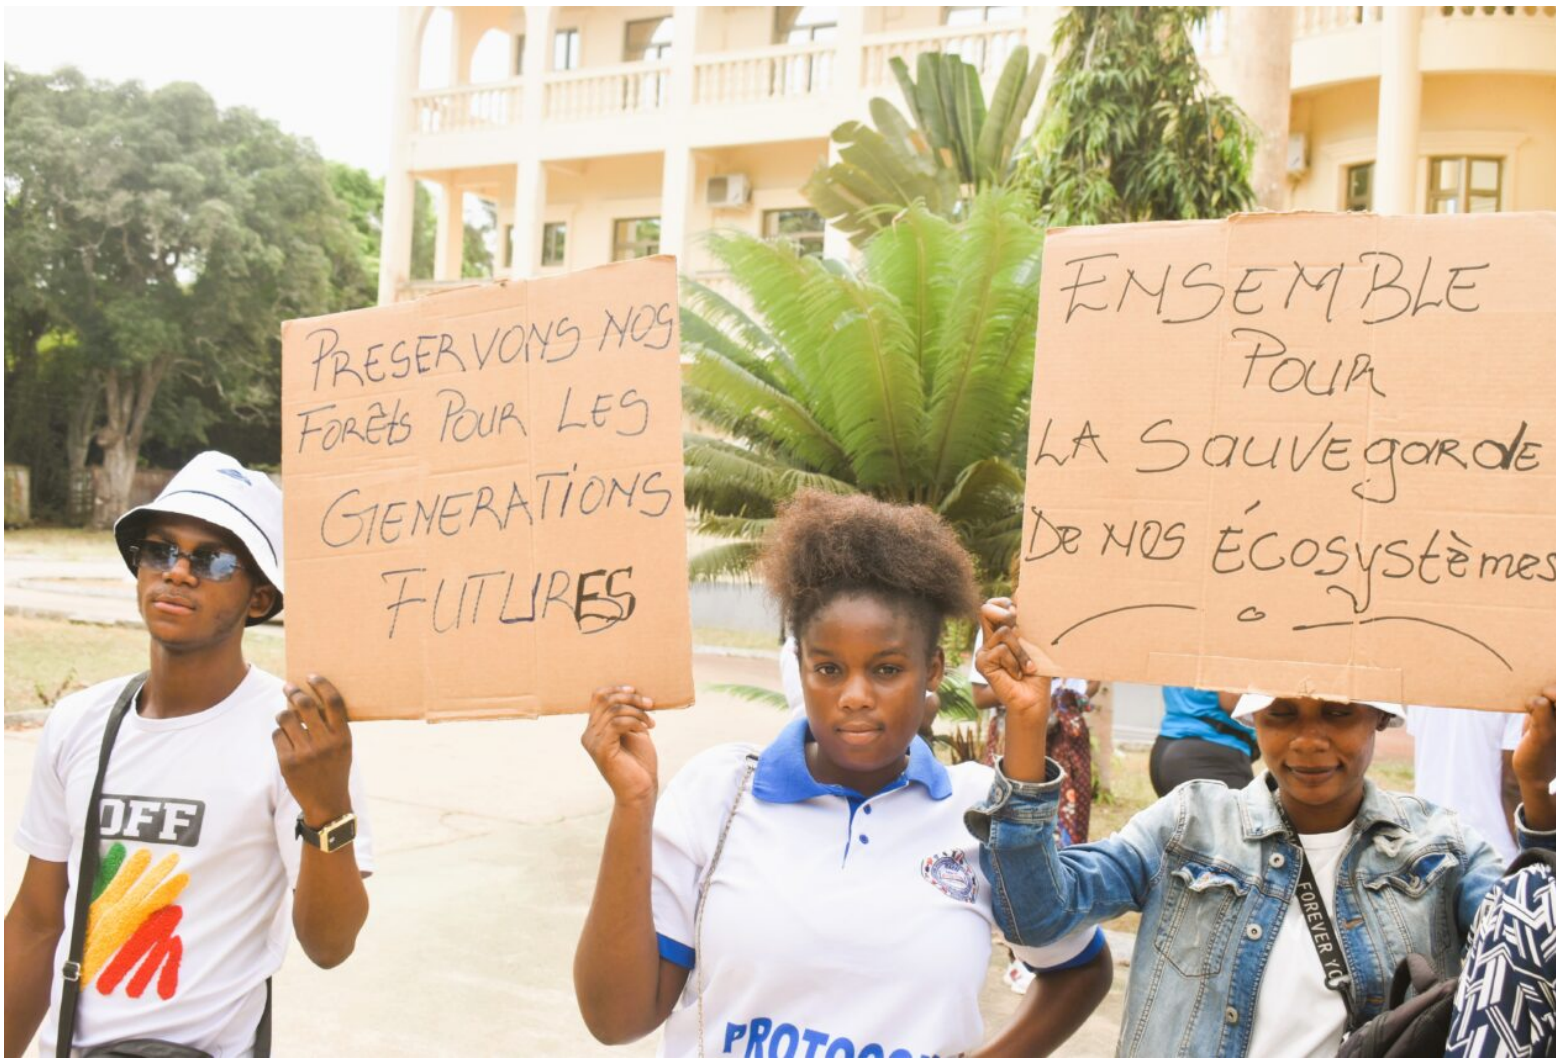 PRESERVONS NOS
FORÊts POUR LES
GENERATIONS
FUTURES
ENSEMBLE
POUR
LA SAUVEgARde
De NOS ÉCOSystèmes
OFF
FOREVER YO